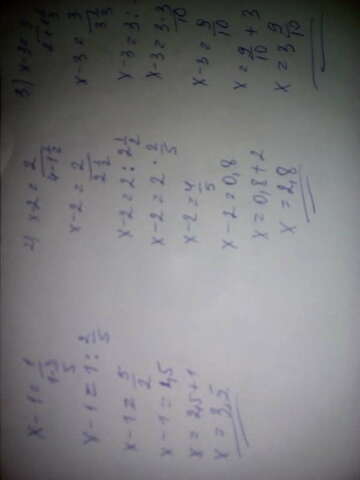 x-1=1/(1-3/5)
x-1=1:2/5
x-1=5/2
x-1=2,5
x=2,5+1
x=3,5
2) x-2=2/(4-1 1/2)
x-2=2/(2 1/2)
x-2=2:2 1/2
x-2=2·2/5
x-2=4/5
x-2=0,8
x=0,8+2
x=2,8
3) x-3=3
x-3=3/(3 1/3)
x-3=3:
x-3=3·3/10
x-3=9/10
x=9/10+3
x=3 9/10